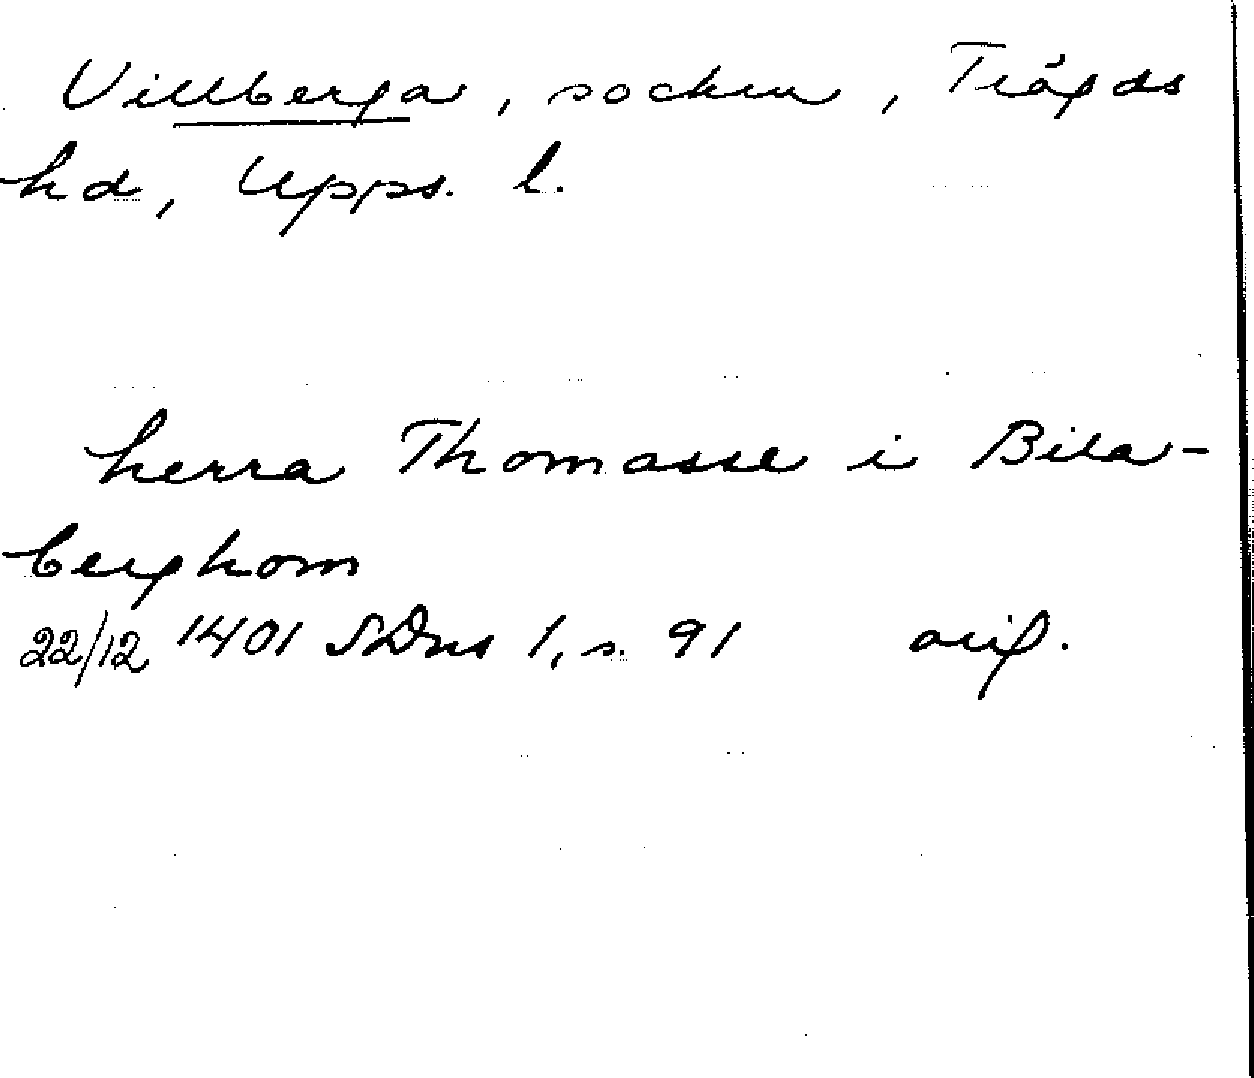 Villberga, socken, Trögds
hd, Upps. l.
herra Thomasse i Bila-
berghom
22/12 1401 SDns 1, s. 91 orig.